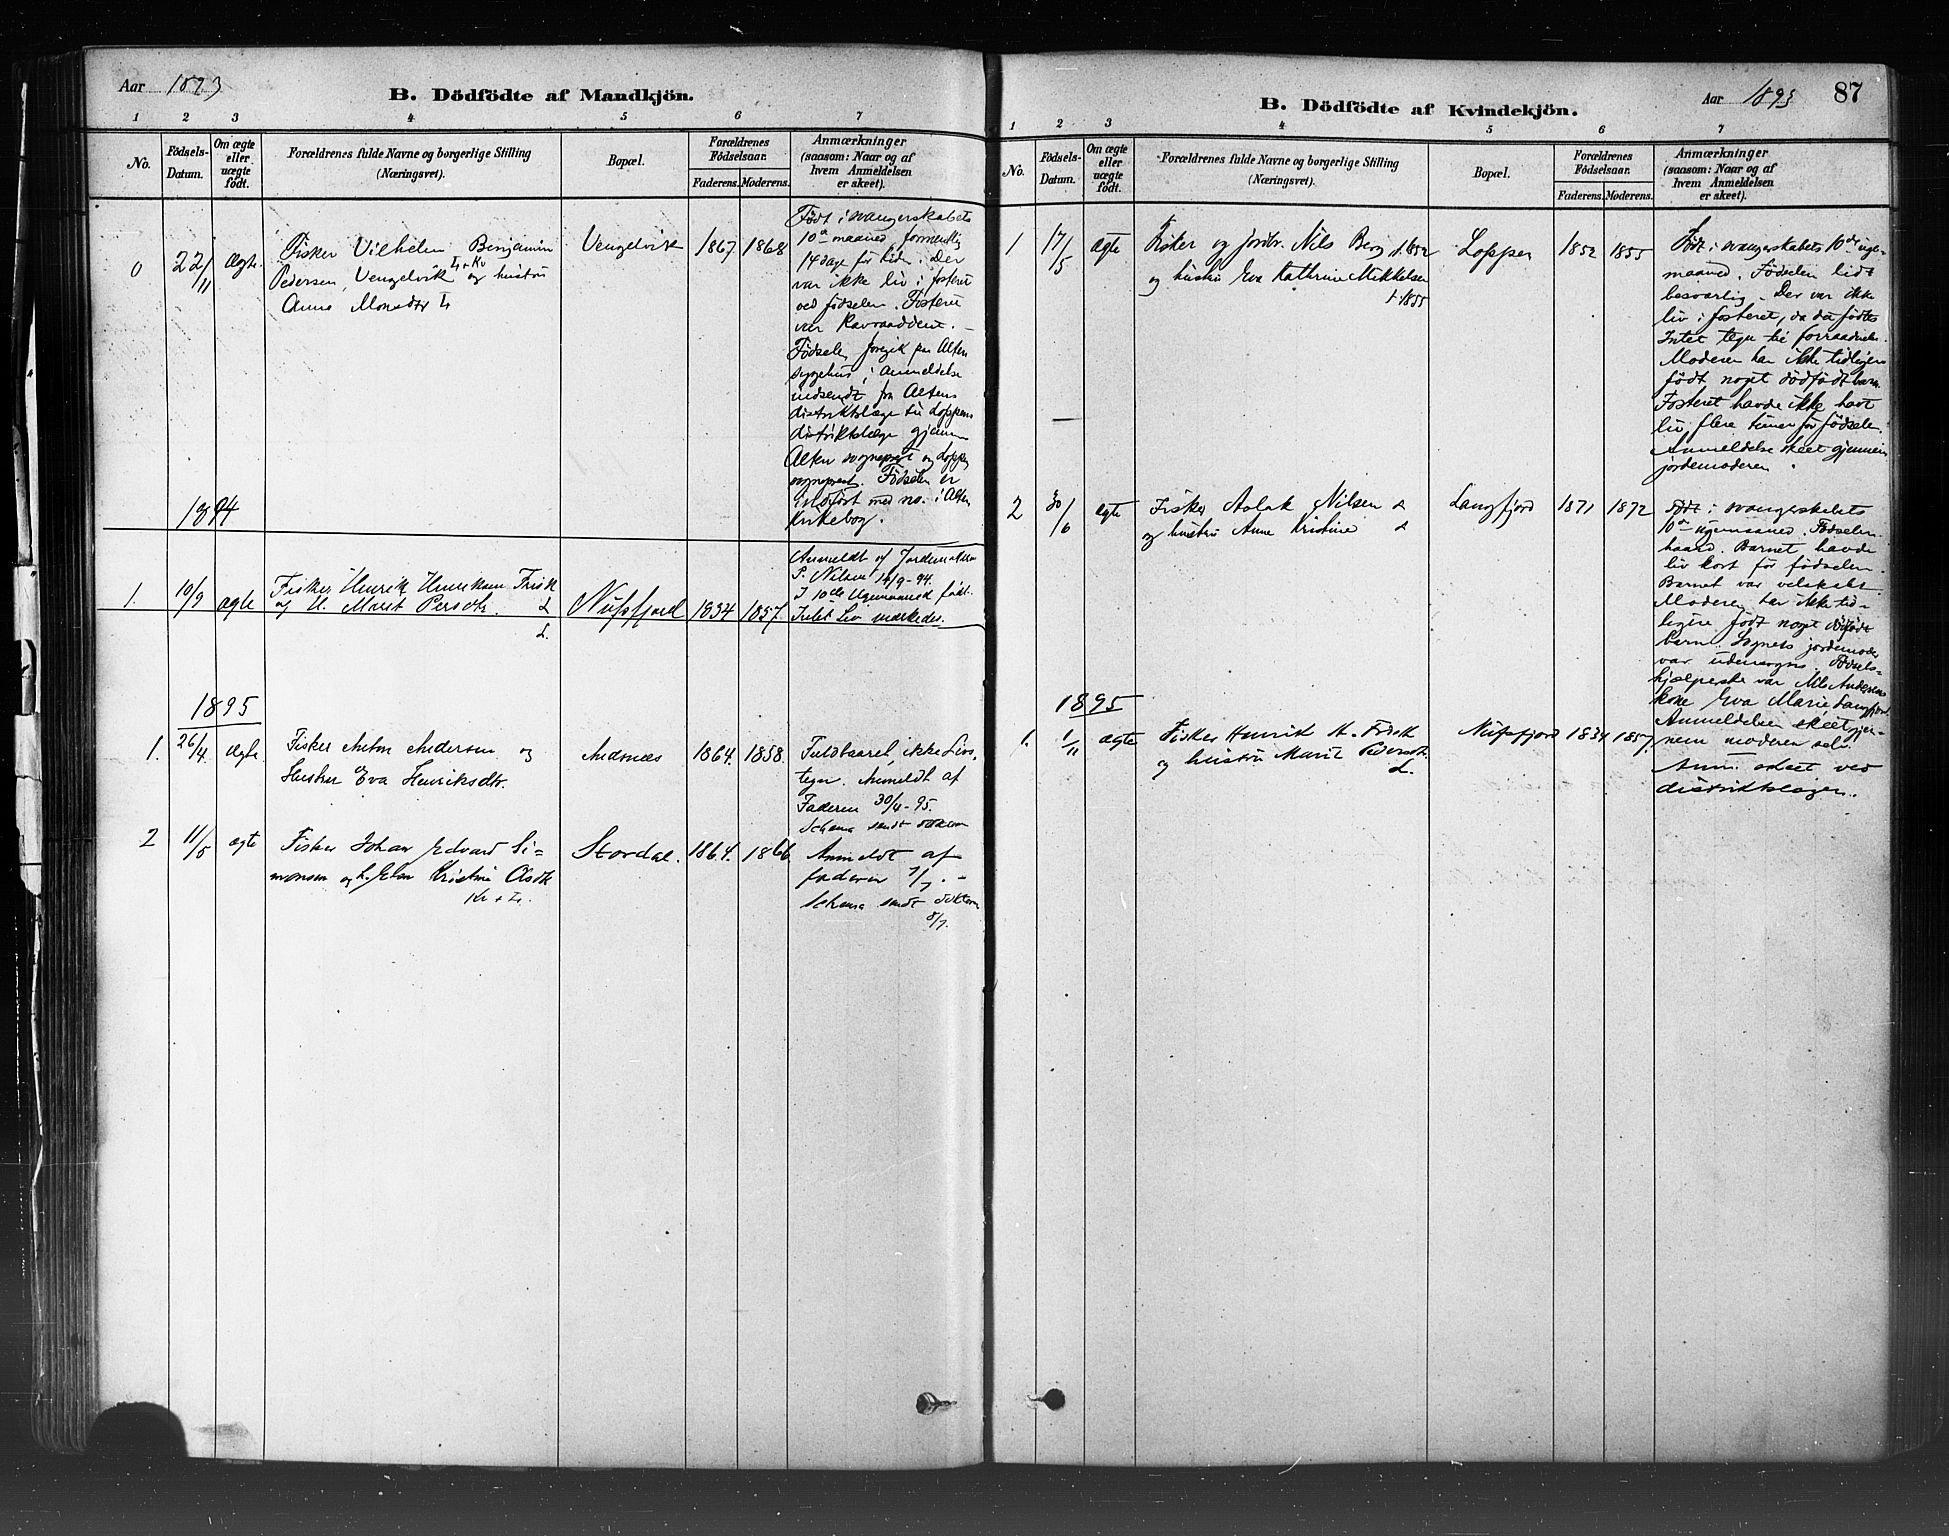 Aar 1893
B. Dödfödte af Mandkjön.
1 2 3 4 5 6 7
No.
Födsels-
Datum.
Om ægte
eller
uægte
födt.
Forældrenes fulde Navne og borgerlige Stilling
(Næringsvei).
Bopæl.
Forældrenes
Födselsaar.
Faderens. Moderens.
Anmærkninger
(saasom: Naar og af
hvem Anmeldelsen
er skeet).
0 22/11 Ægte.
Fisker Vilhelm Benjamin
Pedersen, Vengelvik og hustru
Anna
Vengelvik 1867 1868
Født i svangerskabets
10de maaned
14 dage før tiden. Der
var ikke liv i fosteret
ved fødselen. Fosteret
var
Fødselen foregik paa Alten
sygehus, Anmeldelse
indsendt fra Altens
distriktslæge til Loppens
distriktslæge gjennem
Alten sogneprest og Loppen
sogneprest. Fødselen er
indført med no. i Alten
Kirkebog.
1894
1. 10/9 ægte
Fisker Henrik Henriksen Frisk
og H. Marit Persdtr.
Nufsfjord 1834 1857.
Anmeldt af Jordemoderen
P. Nilsen 14/9-94.
I 10de Ugemaaned født.
Intet Liv mærkedes.
1895
1. 26/4 Ægte.
Fisker Anton Andersen og
Hustru Eva Henriksdtr.
Andsnes 1864. 1858.
Fuldbaaret, ikke Livs-
tegn. Anmeldt af
Faderen 30/4-95.
Schema sendt doktoren
2 11/5 ægte
Fisker Johan Edvard Si-
monsen og h. Elen Kristine Olsdtr
Stordal. 1864. 1866
Anmeldt af
faderen 7/7.
Schema sendt doktoren
8/7.
Aar 1895 87
B. Dödfödte af Kvindekjön.
1 2 3 4 5 6 7
No.
Födsels-
Datum.
Om ægte
eller
uægte
födt.
Forældrenes fulde Navne og borgerlige Stilling
(Næringsvei).
Bopæl.
Forældrenes
Födselsaar.
Faderens. Moderens.
Anmærkninger
(saasom: Naar og af
hvem Anmeldelsen
er skeet).
1 17/5 ægte
Fisker og jordbr. Nils Berg f. 1852
og hustru Eva Kathrine Mikkelsen
f. 1855
Loppen 1852 1855
Født i svangerskabets 10de uge-
maaned. Fødselen lidt
besværlig. Der var ikke
liv i fosteret, da det fødtes
Intet tegn til forraadnelse.
Moderen har ikke tidligere
født noget dødfødt barn.
Fosteret havde ikke havt
liv flere timer før fødselen.
Anmeldelse skeet gjennem
jordemoderen.
2 30/6 ægte
Fisker Aslak Nilsen
og hustru Anne Kristine
Langfjord 1871 1872
Født i svangerskabets
10de ugemaaned. Fødselen
haard. Barnet havde
liv kort før fødselen.
Barnet var velskabt.
Moderen har ikke tid-
ligere født noget dødfødt
barn. Sognets jordemoder
var udensogns. Fødsels-
hjælperske var Nils Andersens
kone Eva Marie Langfjord.
Anmeldelsen skeet gjen-
nem moderen selv.
Anm. skeet ved
distriktslægen.
1895
1. 1/11 ægte
Fisker Henrik H. Frisk
og hustru Marit Pedersdtr.
Nufsfjord 1834 1857.